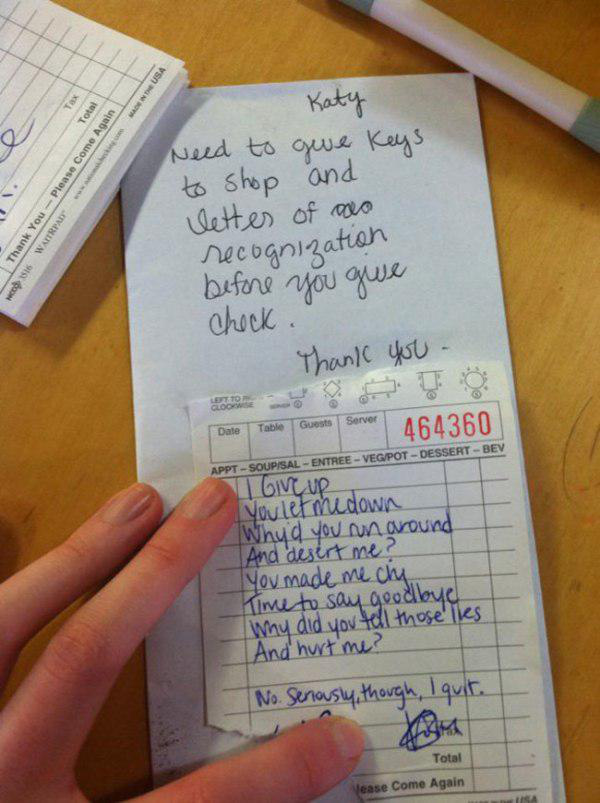 Tax
Total
Thank You – Please Come Again
MADE IN THE USA
NCCO 3516 WAITRPAD®
www.nationalchecking.com
Katy
Need to give Keys
to shop and
letter of
recognization
before you give
check.
Thank you -
LEFT TO
CLOCKWISE
SERVER
Date Table Guests Server 464360
APPT – SOUP/SAL – ENTREE – VEG/POT – DESSERT – BEV
I Give up
You let me down
Why'd you run around
And desert me?
You made me cry
Time to say goodbye
Why did you tell those lies
And hurt me?
No. Seriously, though, I quit.
Tax
Total
lease Come Again